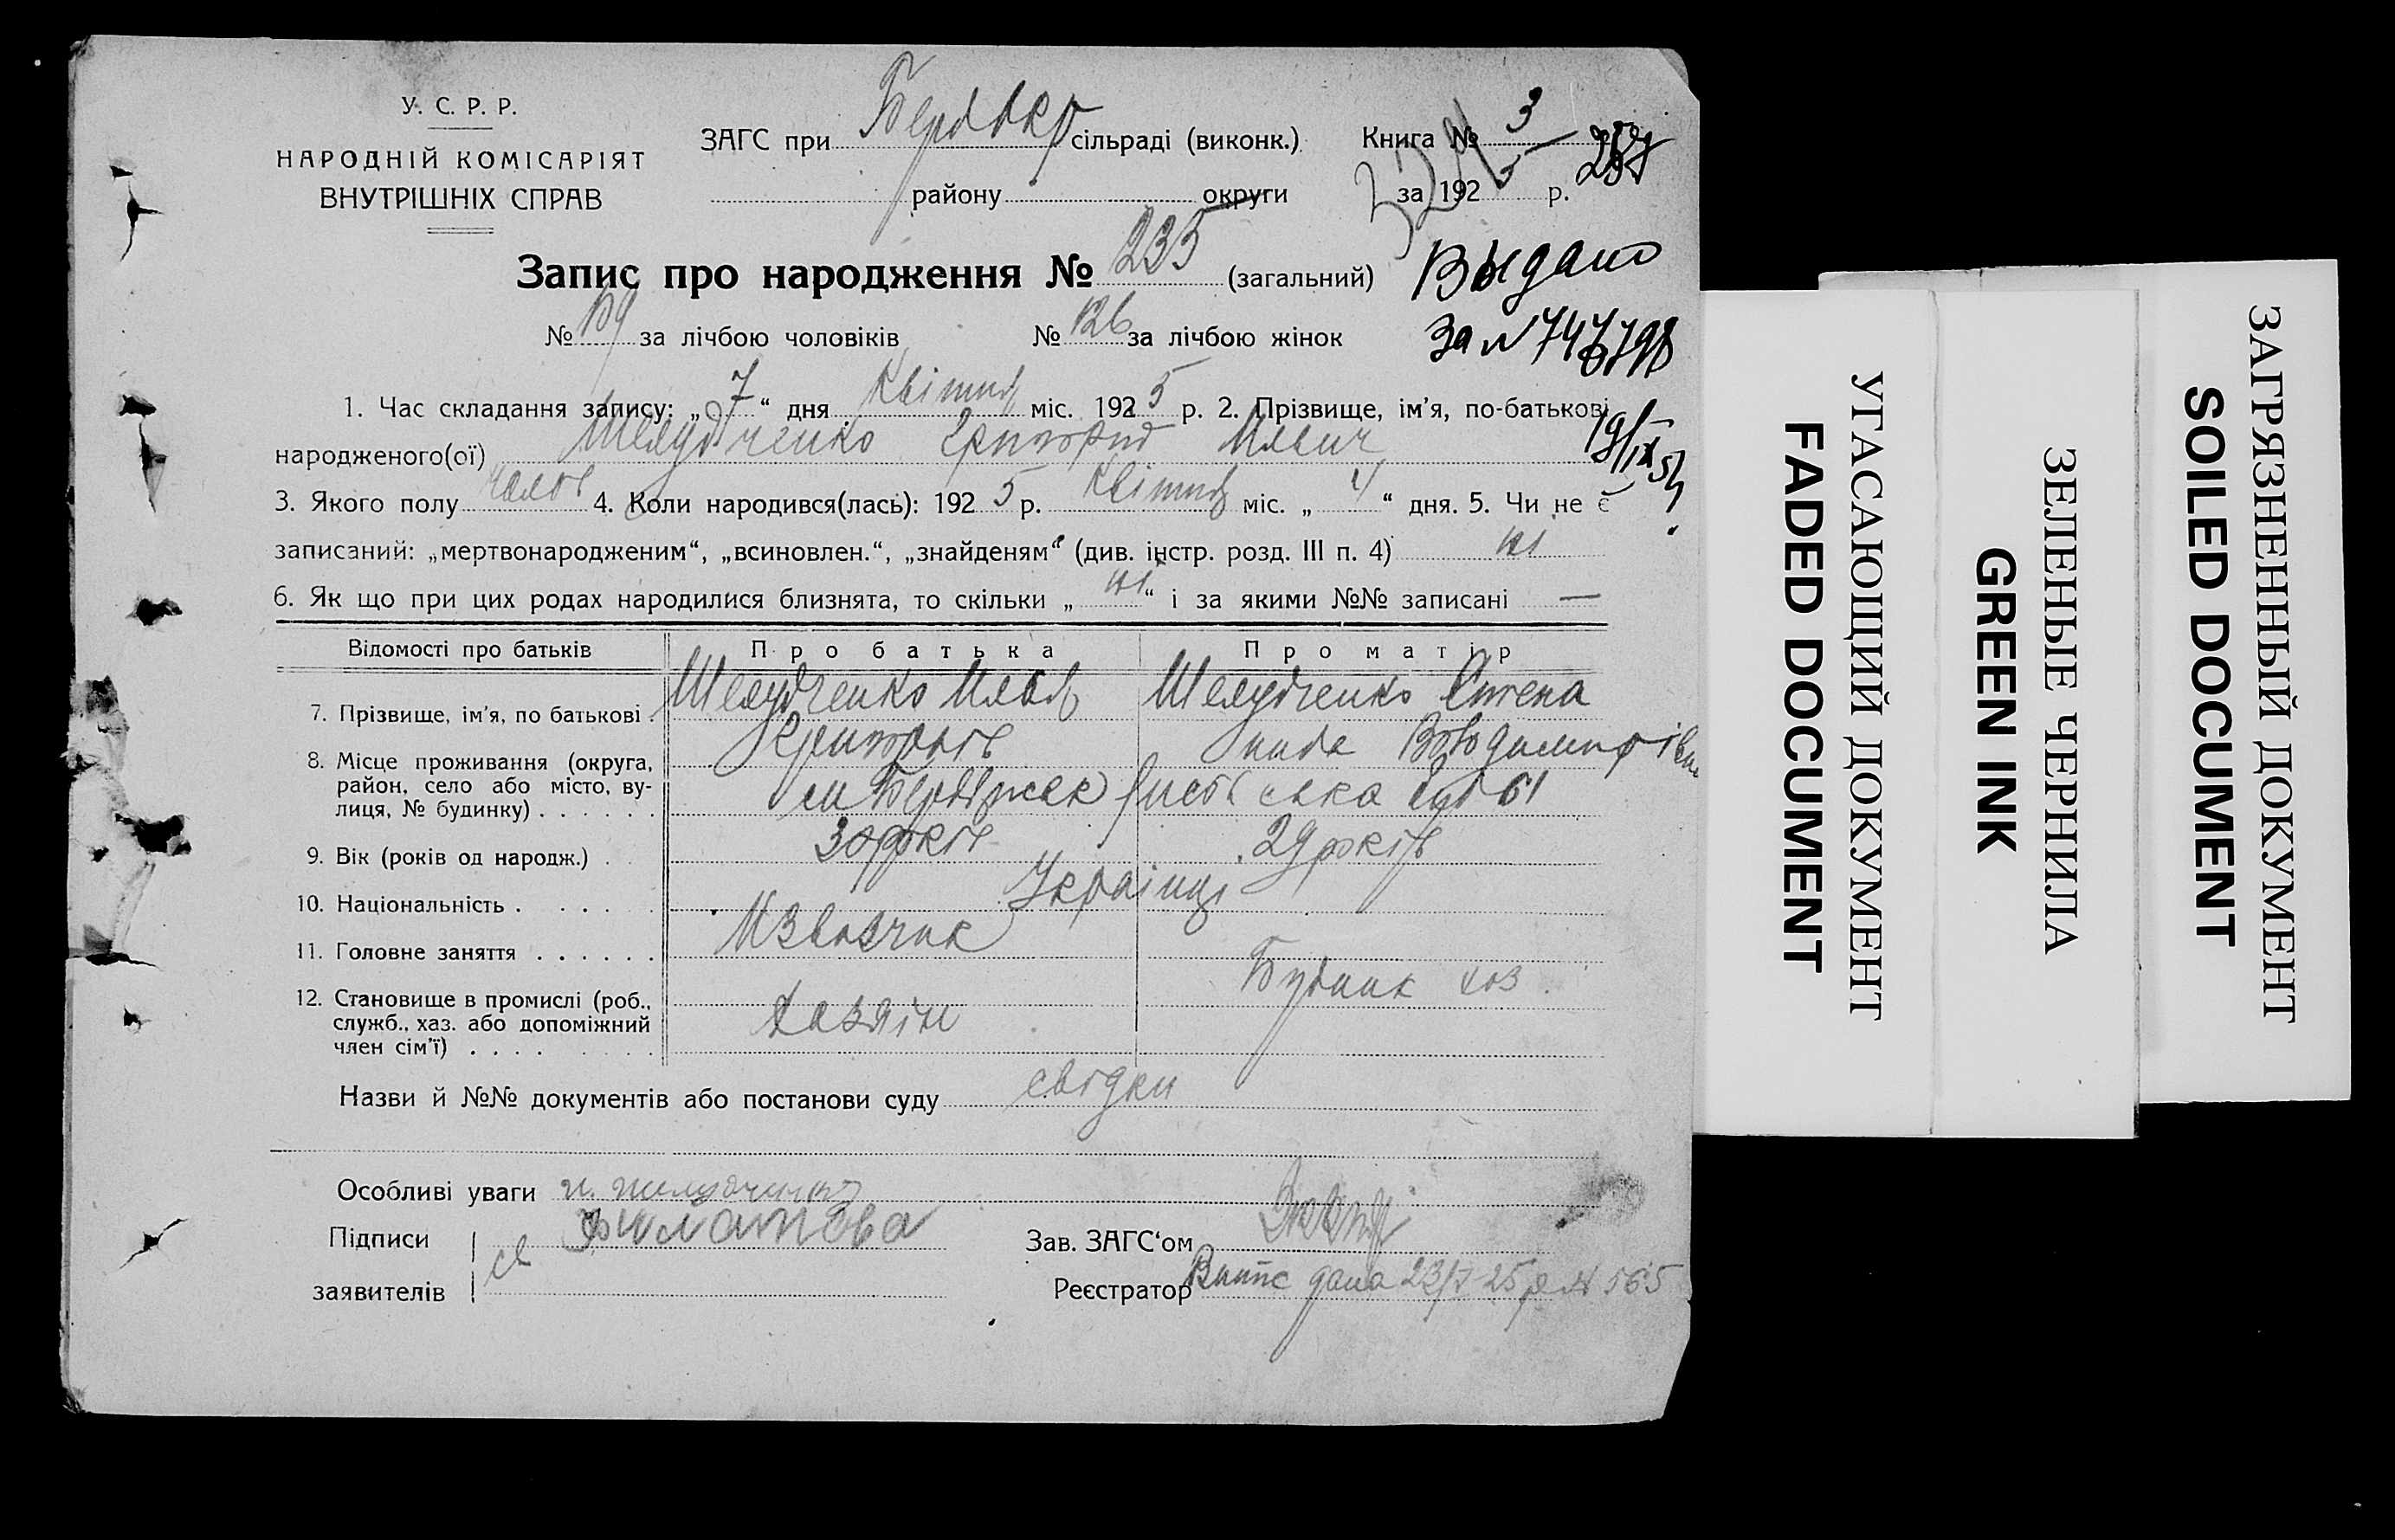 У. С. Р. Р.
НАРОДНІЙ КОМІСАРІЯТ
ВНУТРІШНІХ СПРАВ
ЗАГС при сільраді (виконк.)
району округи
Книга № 3
за 1925 р.
Запис про народження № 235 (загальний)
Выдано
№ за лічбою чоловіків № 126 за лічбою жінок
За №
1. Час складання запису: „7“ дня Квітня міс. 1925 р. 2. Прізвище, ім’я, по-батькові
народженого(ої) Шелудченко Григорій Ильич
19/IX 54
3. Якого полу чолов 4. Коли народився(лась): 1925 р. Квітня міс. „4“ дня. 5. Чи не є
записаний: „мертвонародженим“, „всиновлен.“, „знайденям“ (див. інстр. розд. III п. 4) ні
6. Як що при цих родах народилися близнята, то скільки „ні“ і за якими №№ записані —
Відомості про батьків Про батька Про матір
7. Прізвище, ім’я, по батькові . Шелудченко Илья Шелудченко
Володимирівна
8. Місце проживання (округа,
район, село або місто, ву-
лиця, № будинку) . . . . . . 61
9. Вік (років од народж.) . 30 років 29 років
10. Національність . . . . . Українці
11. Головне заняття . . . . . . Извозчик
12. Становище в промислі (роб.,
служб., хаз. або допоміжний
член сім’ї) . . . . . . . . Хазяїн хоз.
Назви й №№ документів або постанови суду свідки
Особливі уваги
Підписи Филатова
заявителів
Зав. ЗАГС‘ом
Реєстратор
дана 565
УГАСАЮЩИЙ ДОКУМЕНТ
FADED DOCUMENT
ЗЕЛЕНЫЕ ЧЕРНИЛА
GREEN INK
ЗАГРЯЗНЕННЫЙ ДОКУМЕНТ
SOILED DOCUMENT